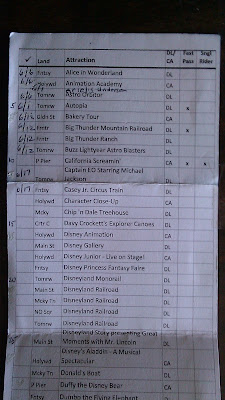 ✓ Land Attraction DL/ CA Fast Pass Sngl Rider
6/6 Fntsy Alice in Wonderland DL
Hlywd Animation Academy CA
6/6 Tmrw Astro Orbitor DL
5 6/1 Tomrw Autopia DL x
Bakery Tour CA
6/12 Fntr Big Thunder Mountain Railroad DL x
6/12 Fntr Big Thunder Ranch DL
6/12 Tomrw Buzz Lightyear Astro Blasters DL
P Pier California Screamin' CA x x
6/17 Captain EO Starring Michael
Tomrw Jackson DL
6/17 Fntsy Casey Jr. Circus Train DL
Holywd Character Close-Up CA
Mcky Chip 'n Dale Treehouse DL
Crtr C Davy Crockett's Explorer Canoes DL
Holywd Disney Animation CA
Main St Disney Gallery DL
Holywd Disney Junior - Live on Stage! CA
Fntsy Disney Princess Fantasy Faire DL
Tomrw Disneyland Monorail DL
Main St Disneyland Railroad DL
Mcky Tn Disneyland Railroad DL
NO Sqr Disneyland Railroad DL
Tomrw Disneyland Railroad DL
Disneyland Story presenting Great
Main St Moments with Mr. Lincoln DL
Disney's Aladdin - A Musical
Holywd Spectacular CA
Mcky Tn Donald's Boat DL
P Pier Duffy the Disney Bear CA
Fntsy Dumbo the Flying Elephant